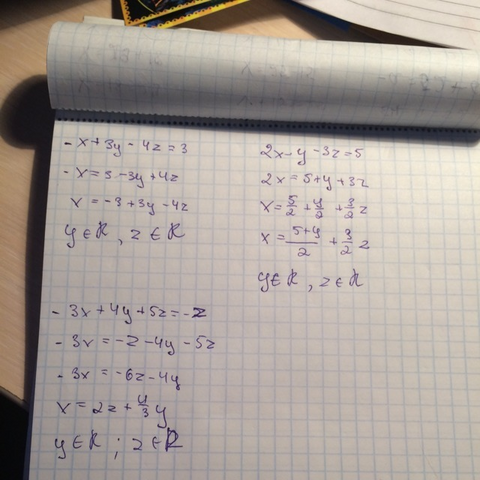 - x + 3y - 4z = 3
- x = 3 - 3y + 4z
x = -3 + 3y - 4z
y ∈ R , z ∈ R
2x - y - 3z = 5
2x = 5 + y + 3z
x = 5/2 + y/2 + 3/2 z
x = (5+y)/2 + 3/2 z
y ∈ R , z ∈ R
- 3x + 4y + 5z = -z
- 3x = -z - 4y - 5z
- 3x = -6z - 4y
x = 2z + 4/3 y
y ∈ R ; z ∈ R